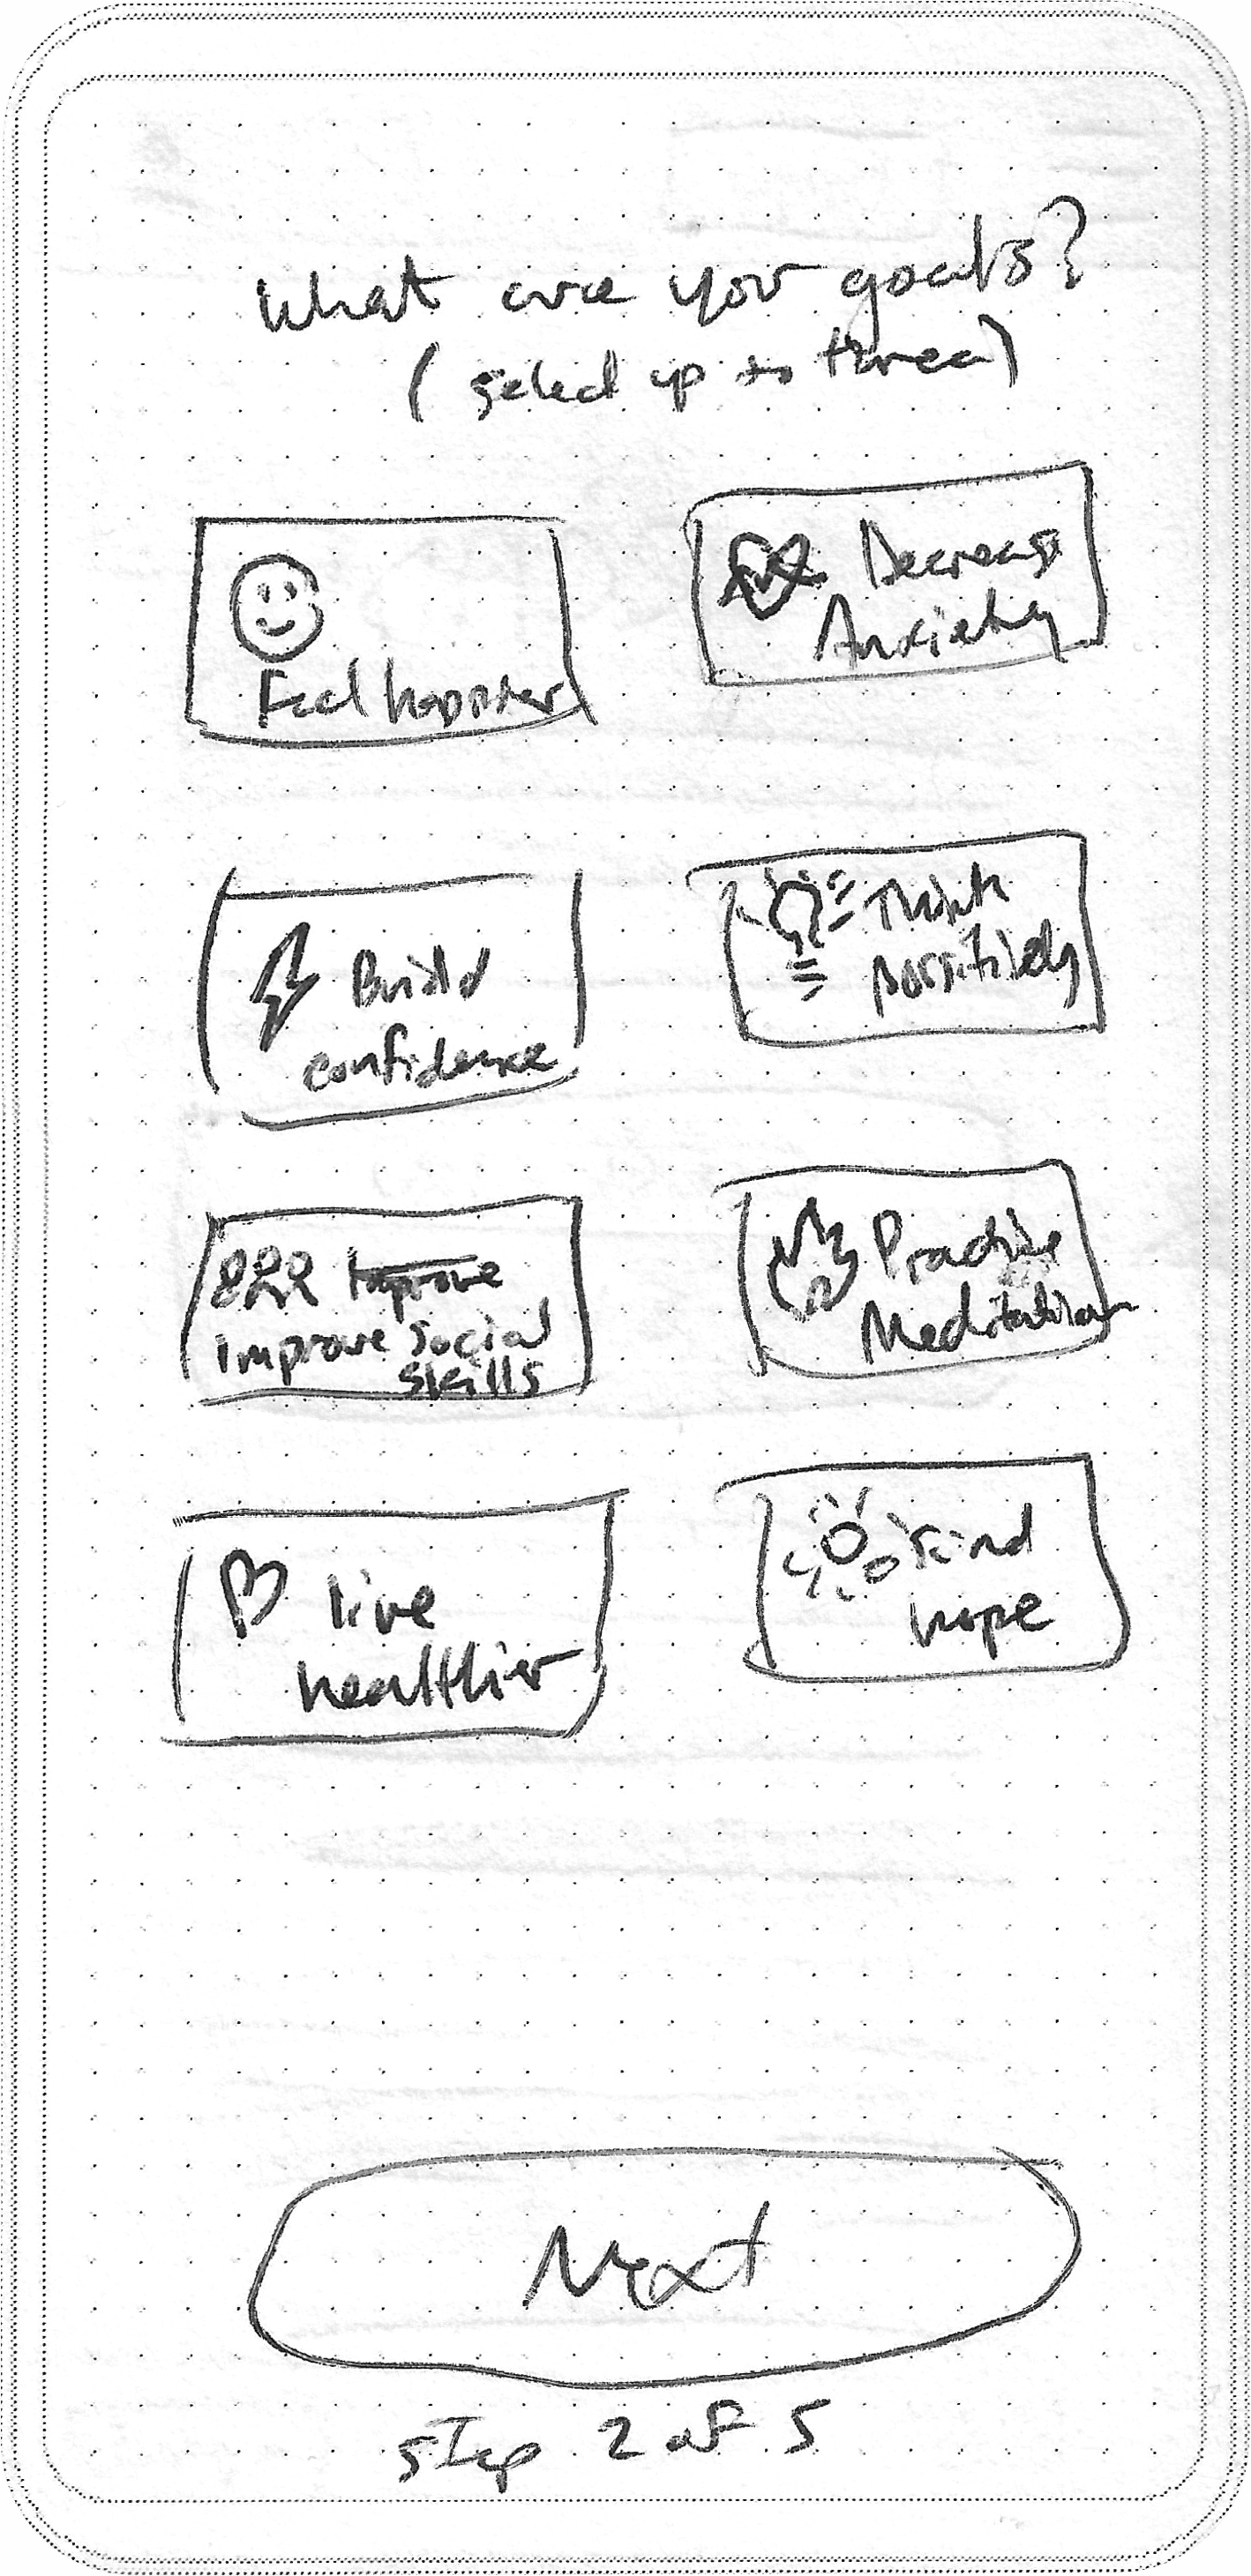 What are your goals?
(select up to three)
Feel happier
Decrease
Anxiety
Build
confidence
Think
positively
Improve
Improve Social
Skills
Practice
Meditation
live
healthier
Find
hope
Next
Step 2 of 5